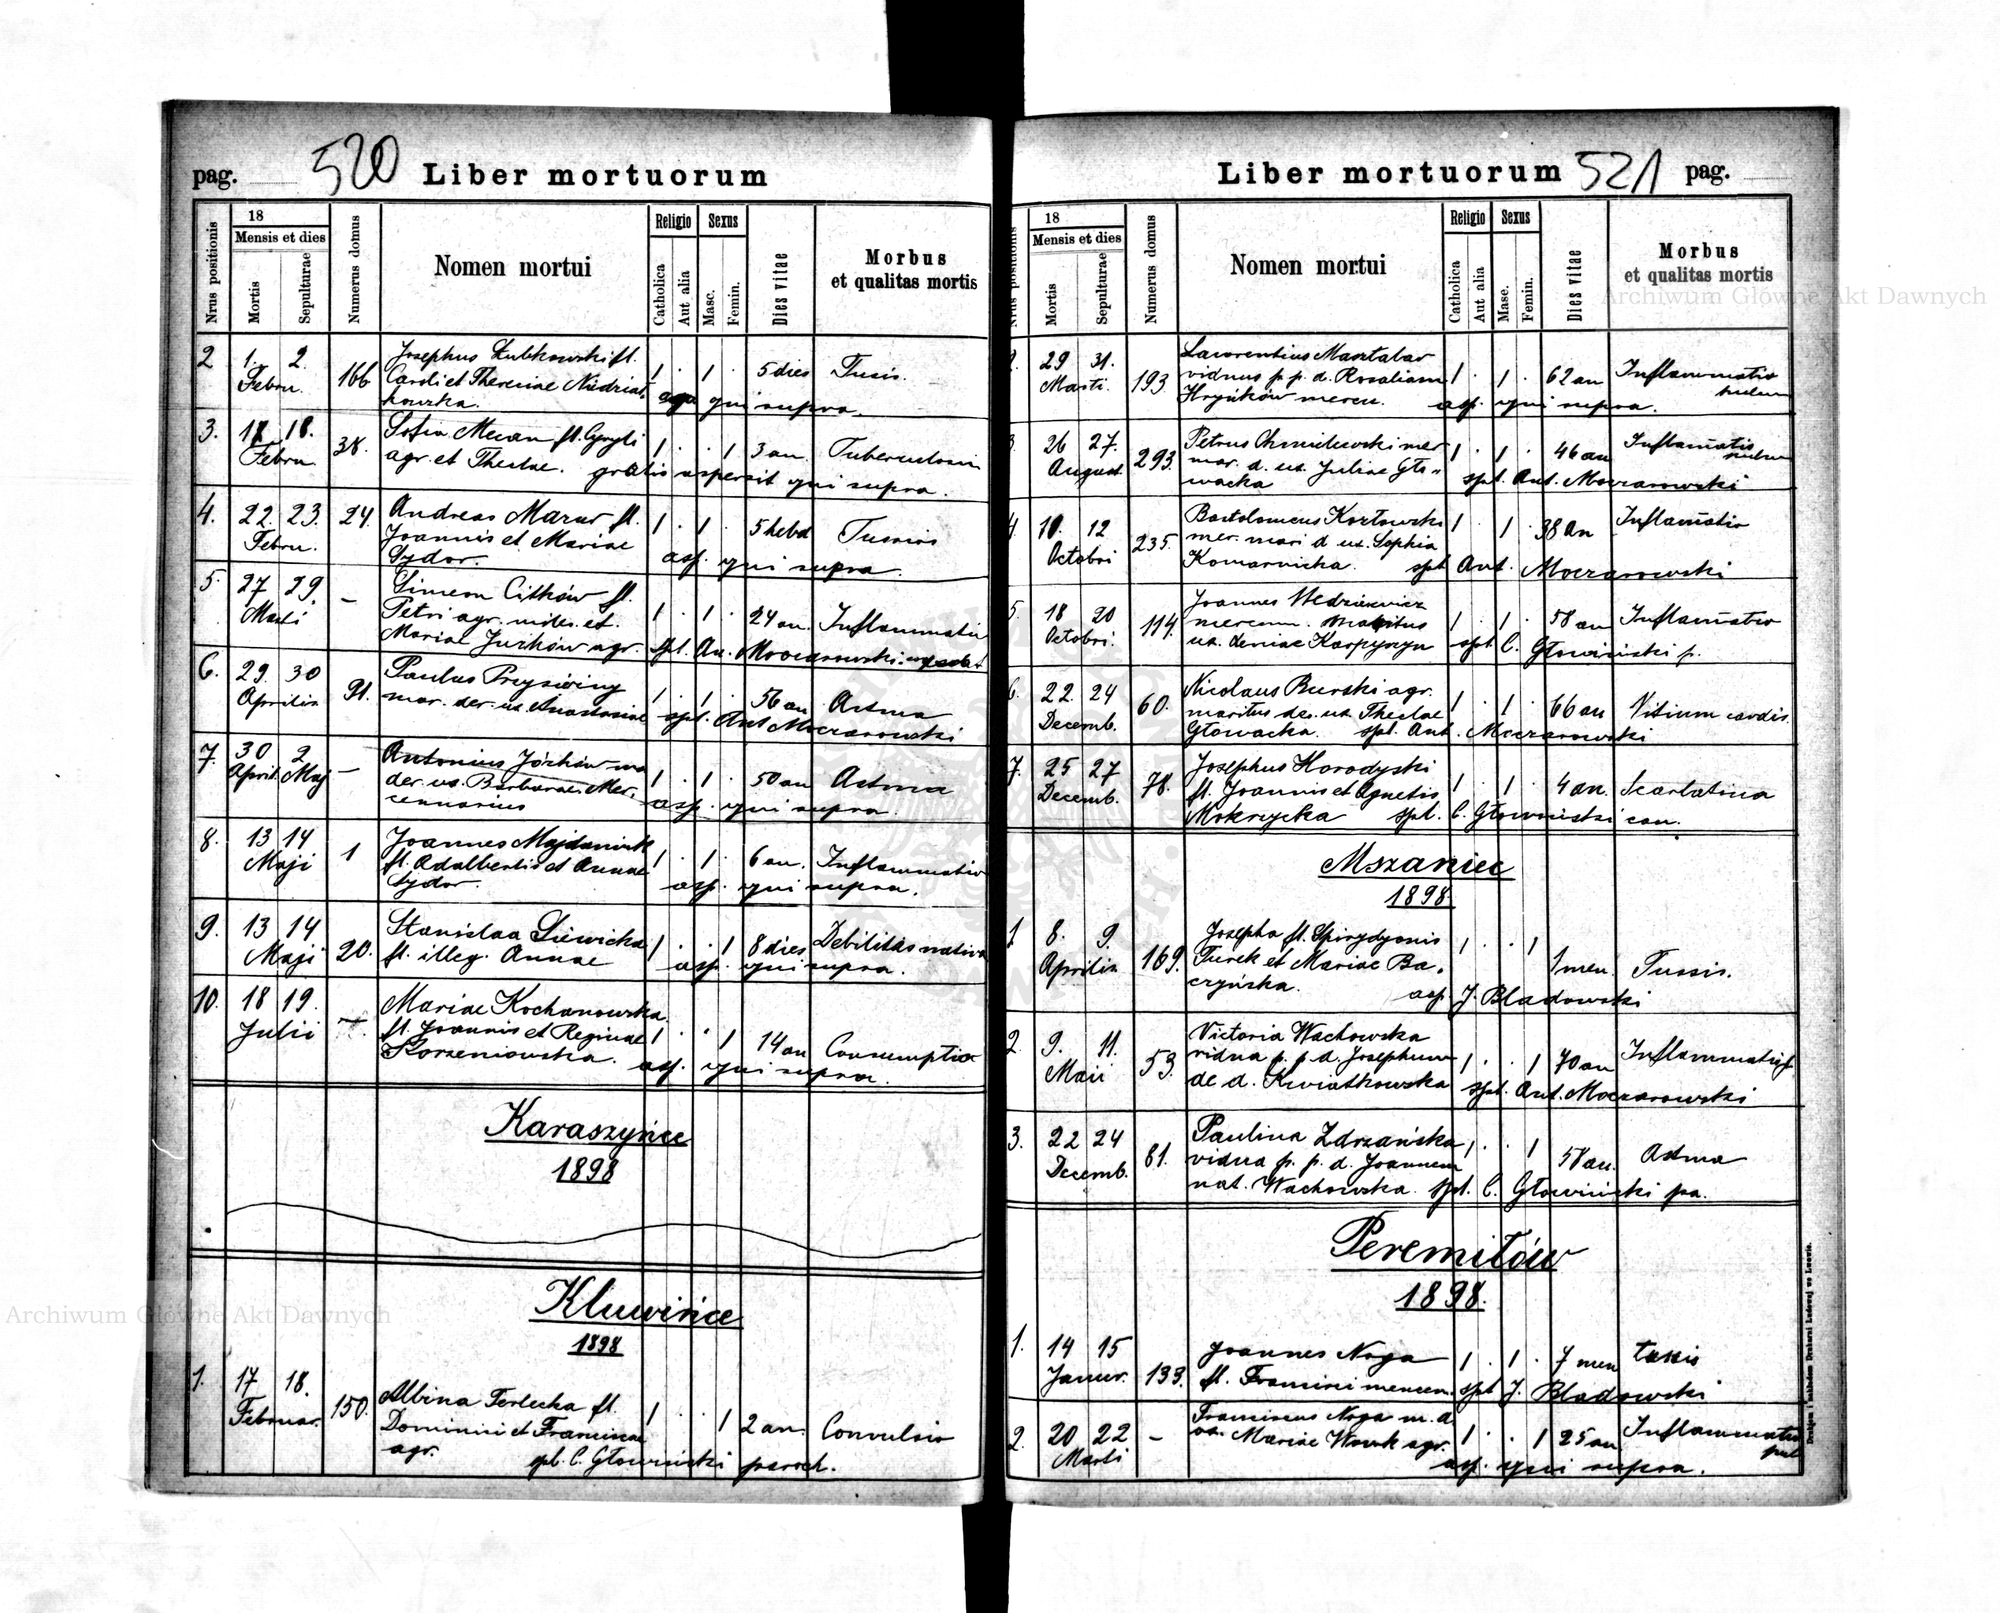 pag. 520 Liber mortuorum
Nrus positionis
18
Mensis et dies
Mortis
Sepulturae
Numerus domus
Nomen mortui
Religio
Catholica
Aut alia
Sexus
Masc.
Femin.
Dies vitae
Morbus
et qualitas mortis
2 1. 2. Febru. 166 Josephus fl.
Caroli et Theresiae
howska. 1 . 1 . 5 dies Tussis.
qui supra.
3. 18. Febru. 38. Sofia fl. Cyryli
agr. et Theclae. 1 . . 1 3 an. Tuberculosis
gratis aspersit qui supra.
4. 22. 23. Febru. 24. Andreas Mazur fl.
Joannis et Mariae
Sydor. 1 . 1 . 5 hebd Tussis
asp. qui supra.
5. 27 29. Marti – Simeon Citków fl.
Petri agr. miles. et
Mariae Juzków agr. 1 . 1 . 24 an. Inflammatio
spl. An. Moczarowski
6. 29. 30 Aprilis 91. Paulus
mar. der. ux. Anastasiae 1 . 1 . 56 an Astma
spl. Ant Moczarowski
7. 30 April. 2 Maj – Antonius Józków ma
der. ux. Barbarae Mer.
cennarius 1 . 1 . 50 an Astma
asp. qui supra.
8. 13 14 Maji 1 Joannes Majdaniuk
fl. Adalberti et Annae
Sydor. 1 . 1 . 6 an. Inflammatio
asp. qui supra.
9. 13 14 Maji 20. Stanislaa Siewicka
fl. illeg. Annae 1 . . 1 8 dies Debilitas nativa
asp. qui supra.
10. 18 19. Julii – Mariae Kochanowska
fl. Joannis et Reginae
Korzeniowska. 1 . . 1 14 an Consumptio
asp. qui supra.
Karaszyńce
1898
Kluwińce
1898
1. 17 18. Februar. 150. Albina Terlecka fl.
Dominici et Franciscae
agr. 1 . . 1 2 an. Convulsio
spl. C. Głowiński paroch.
Liber mortuorum 521 pag.
Nrus positionis
18
Mensis et dies
Mortis
Sepulturae
Numerus domus
Nomen mortui
Religio
Catholica
Aut alia
Sexus
Masc.
Femin.
Dies vitae
Morbus
et qualitas mortis
29 31. Marti. 193. Lawrentius Masztalar
viduus p. p. d. Rosaliam
Hryńków mercu. 1 . 1 . 62 an Inflammatio
asp. qui supra.
26 27. August. 293. Petrus Chmielewski mer
mar. d. ux. Juliae Gło-
wacka 1 . 1 . 46 an Inflamatio
spt. Ant. Moczarowski
4. 10. 12 Octobri 235. Bartolomeus Kozłowski
mer. mari d ux. Sophia
Komarnicka. 1 . 1 . 38 an Inflamatio
spt Ant. Moczarowski
5. 18 20 Octobri. 114. Joannes
mercenn. maritus
ux. Karpyszyn 1 . 1 . 58 an Inflamatio
spt. C. Głowiński p.
6. 22. 24 Decemb. 60. Nicolaus Burski agr.
maritus der. ux. Theclae
Głowacka. 1 . 1 . 66 an Vitium cordis.
spl. Ant. Moczarowski
7. 25 27 Decemb. 78. Josephus Horodyski
fl. Joannis et Agnetis
Mokrzycka 1 . 1 . 4 an. Scarlatina
spl. C. Głowiński can.
Mszaniec
1898
1 8. 9. Aprilis 169. Josepha fl. Spirydyonis
Turek et Mariae Ba-
czyńska. 1 . . 1 1 men. Tussis.
asp. J. Bladowski
2. 9. 11. Maii 53. Victoria Wachowska
vidua p. p. d. Josephum
de d. Kwiatkowska 1 . . 1 70 an Inflammatio
spt. Ant. Moczarowski
3. 22 24 Decemb. 81. Paulina Zdrzańska
vidua p. p. d. Joannem
nat. Wachowska. 1 . . 1 58 an. Astma
spt. C. Głowiński pa.
Peremiłów
1898.
1. 14 15 Januar. 133. Joannes Noga
fl. Francisci mercen. 1 . 1 . 7 men tussis
spt J. Bladowski
2. 20 22 Marti – Franciscus Noga m. d.
ux. Mariae Wowk agr. 1 . . 1 25 an Inflammatio
pul
asp. qui supra.
Archiwum Główne Akt Dawnych
Archiwum Główne Akt Dawnych